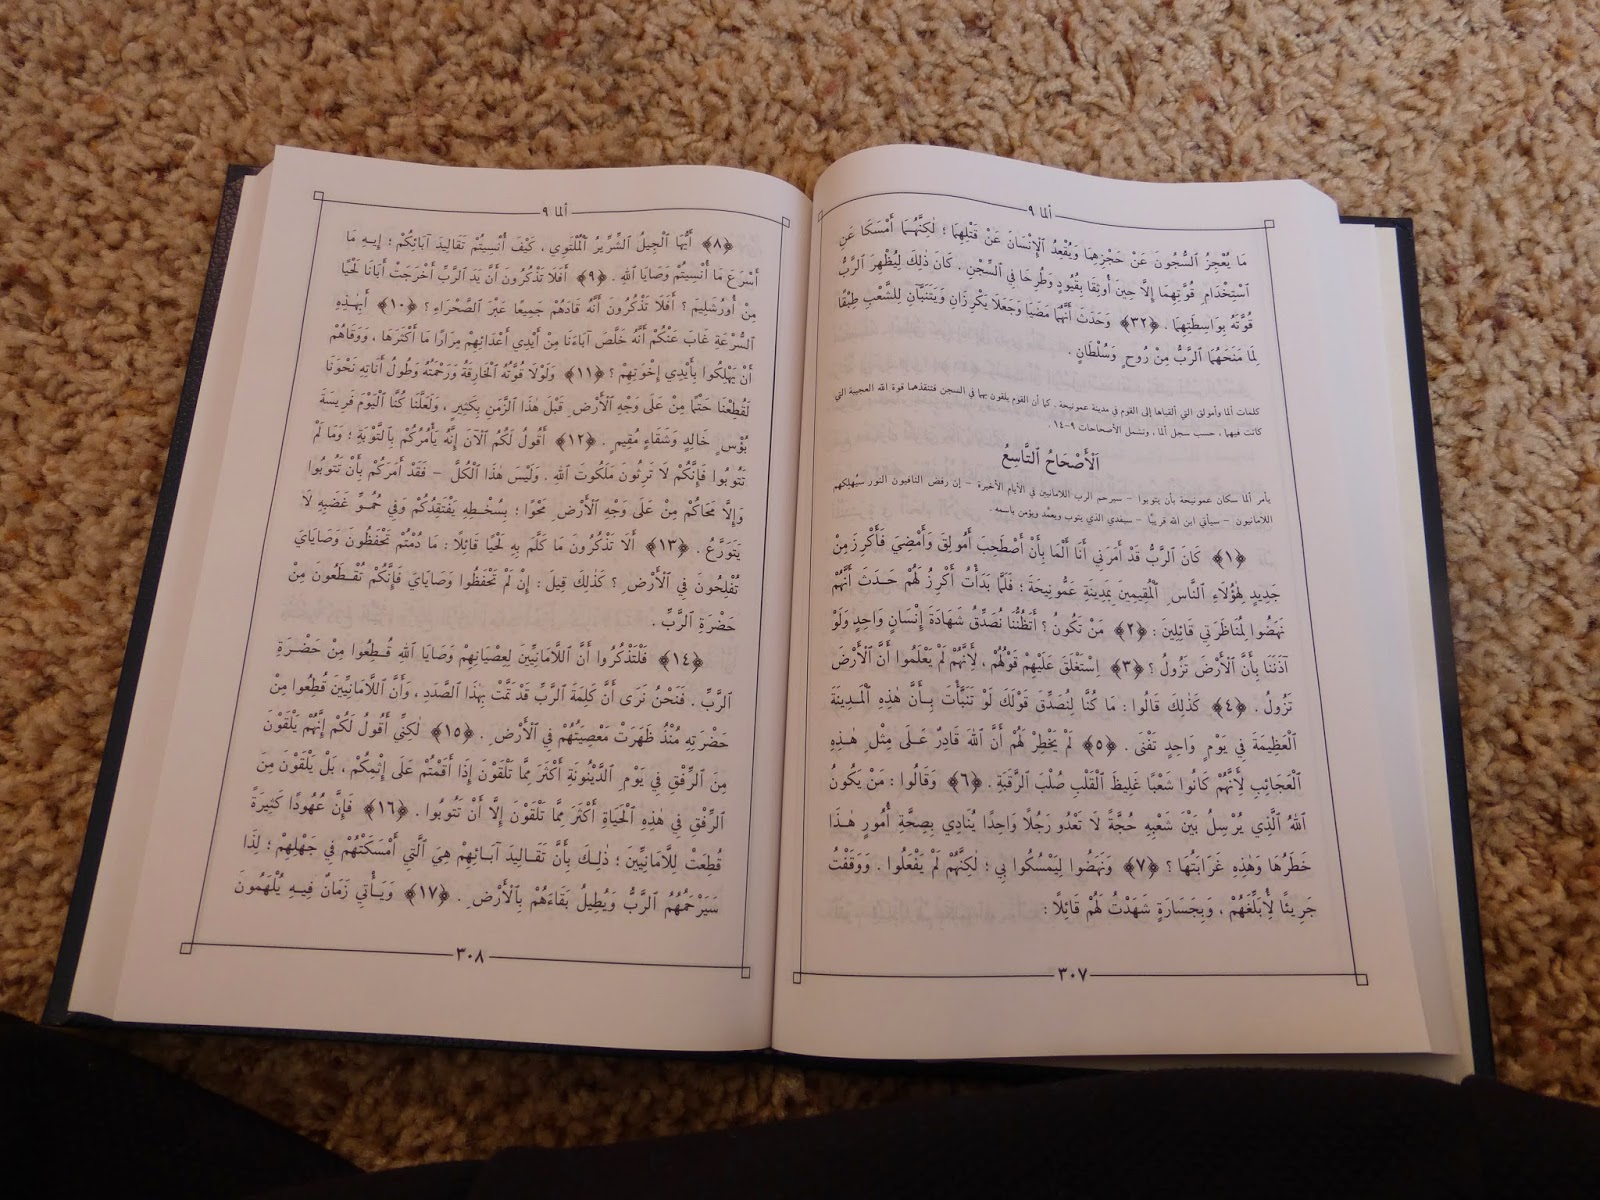 ألما ٩
مَا يُعْجِزُ ٱلسُّجُونَ عَنْ حَجْزِهِمَا وَيُقْعِدُ ٱلْإِنْسَانَ عَنْ قَتْلِهِمَا ؛ لٰكِنَّهُمَا أَمْسَكَا عَنِ
ٱسْتِخْدَامِ قُوَّتِهِمَا إِلَّا حِينَ أُوثِقَا بِقُيُودٍ وَطُرِحَا فِي ٱلسِّجْنِ . كَانَ ذٰلِكَ لِيُظْهِرَ ٱلرَّبُّ
قُوَّتَهُ بِوَاسِطَتِهِمَا . ﴿٣٢﴾ وَحَدَثَ أَنَّهُمَا مَضَيَا وَجَعَلَا يَكْرِزَانِ وَيَتَنَبَّآنِ لِلشَّعْبِ طِبْقًا
لِمَا مَنَحَهُمَا ٱلرَّبُّ مِنْ رُوحٍ وَسُلْطَانٍ .
كلمات ألما وأمولق التي ألقياها إلى القوم في مدينة عمونيحة . كما أن القوم يلقون بهما في السجن فتنقذهما قوة الله العجيبة التي
كانت فيهما ، حسب سجل ألما . وتشمل الأصحاحات ٩-١٤ .
ٱلْأَصْحَاحُ ٱلتَّاسِعُ
يأمر ألما سكان عمونيحة بأن يتوبوا – سيرحم الرب اللامانيين في الأيام الأخيرة – إن رفض النافيون النور سيُهلكهم
اللامانيون – سيأتي ابن الله قريبًا – سيفدي الذي يتوب ويعمَّد ويؤمن باسمه .
﴿١﴾ كَانَ ٱلرَّبُّ قَدْ أَمَرَنِي أَنَا أَلْمَا بِأَنْ أَصْطَحِبَ أَمُولِقَ وَأَمْضِيَ فَأَكْرِزَ مِنْ
جَدِيدٍ لِهٰؤُلَاءِ ٱلنَّاسِ ٱلْمُقِيمِينَ بِمَدِينَةِ عَمُّونِيحَةَ ؛ فَلَمَّا بَدَأْتُ أَكْرِزُ لَهُمْ حَدَثَ أَنَّهُمْ
نَهَضُوا لِمُنَاظَرَتِي قَائِلِينَ : ﴿٢﴾ مَنْ تَكُونُ ؟ أَتَظُنُّنَا نُصَدِّقُ شَهَادَةَ إِنْسَانٍ وَاحِدٍ وَلَوْ
آذَنَنَا بِأَنَّ ٱلْأَرْضَ تَزُولُ ؟ ﴿٣﴾ اِسْتَغْلَقَ عَلَيْهِمْ قَوْلُهُمْ ، لِأَنَّهُمْ لَمْ يَعْلَمُوا أَنَّ ٱلْأَرْضَ
تَزُولُ . ﴿٤﴾ كَذٰلِكَ قَالُوا : مَا كُنَّا لِنُصَدِّقَ قَوْلَكَ لَوْ تَنَبَّأْتَ بِأَنَّ هٰذِهِ ٱلْمَدِينَةَ
ٱلْعَظِيمَةَ فِي يَوْمٍ وَاحِدٍ تَفْنَى . ﴿٥﴾ لَمْ يَخْطِرْ لَهُمْ أَنَّ ٱللهَ قَادِرٌ عَلَى مِثْلِ هٰذِهِ
ٱلْعَجَائِبِ لِأَنَّهُمْ كَانُوا شَعْبًا غَلِيظَ ٱلْقَلْبِ صُلْبَ ٱلرَّقَبَةِ . ﴿٦﴾ وَقَالُوا : مَنْ يَكُونُ
ٱللهُ ٱلَّذِي يُرْسِلُ بَيْنَ شَعْبِهِ حُجَّةً لَا تَعْدُو رَجُلًا وَاحِدًا يُنَادِي بِصِحَّةِ أُمُورٍ هٰذَا
خَطَرُهَا وَهٰذِهِ غَرَابَتُهَا ؟ ﴿٧﴾ وَنَهَضُوا لِيُمْسِكُوا بِي ؛ لٰكِنَّهُمْ لَمْ يَفْعَلُوا . وَوَقَفْتُ
جَرِيئًا لِأُبَلِّغَهُمْ ، وَبِجَسَارَةٍ شَهَدْتُ لَهُمْ قَائِلًا :
٣٠٧
ألما ٩
﴿٨﴾ أَيُّهَا ٱلْجِيلُ ٱلشِّرِّيرُ ٱلْمُلْتَوِي ، كَيْفَ أُنْسِيتُمْ تَقَالِيدَ آبَائِكُمْ ؛ إِيهِ مَا
أَسْرَعَ مَا أُنْسِيتُمْ وَصَايَا ٱللهِ . ﴿٩﴾ أَفَلَا تَذْكُرُونَ أَنَّ يَدَ ٱلرَّبِّ أَخْرَجَتْ أَبَانَا لَحْيَا
مِنْ أُورُشَلِيمَ ؟ أَفَلَا تَذْكُرُونَ أَنَّهُ قَادَهُمْ جَمِيعًا عَبْرَ ٱلصَّحْرَاءِ ؟ ﴿١٠﴾ أَبِهٰذِهِ
ٱلسُّرْعَةِ غَابَ عَنْكُمْ أَنَّهُ خَلَّصَ آبَاءَنَا مِنْ أَيْدِي أَعْدَائِهِمْ مِرَارًا مَا أَكْثَرَهَا ، وَوَقَاهُمْ
أَنْ يَهْلِكُوا بِأَيْدِي إِخْوَتِهِمْ ؟ ﴿١١﴾ وَلَوْلَا قُوَّتُهُ ٱلْخَارِقَةُ وَرَحْمَتُهُ وَطُولُ أَنَاتِهِ نَحْوَنَا
لَقُطِعْنَا حَتْمًا مِنْ عَلَى وَجْهِ ٱلْأَرْضِ قَبْلَ هٰذَا ٱلزَّمَنِ بِكَثِيرٍ ، وَلَعَلَّنَا كُنَّا ٱلْيَوْمَ فَرِيسَةَ
بُؤْسٍ خَالِدٍ وَشَقَاءٍ مُقِيمٍ . ﴿١٢﴾ أَقُولُ لَكُمُ ٱلْآنَ إِنَّهُ يَأْمُرُكُمْ بِٱلتَّوْبَةِ ؛ وَمَا لَمْ
تَتُوبُوا فَإِنَّكُمْ لَا تَرِثُونَ مَلَكُوتَ ٱللهِ . وَلَيْسَ هٰذَا ٱلْكُلَّ – فَقَدْ أَمَرَكُمْ بِأَنْ تَتُوبُوا
وَإِلَّا مَحَاكُمْ مِنْ عَلَى وَجْهِ ٱلْأَرْضِ مَحْوًا ؛ بِسُخْطِهِ يَفْتَقِدُكُمْ وَفِي حُمُوِّ غَضَبِهِ لَا
يَتَوَرَّعُ . ﴿١٣﴾ أَلَا تَذْكُرُونَ مَا كَلَّمَ بِهِ لَحْيَا قَائِلًا : مَا دُمْتُمْ تَحْفَظُونَ وَصَايَايَ
تُفْلِحُونَ فِي ٱلْأَرْضِ ؟ كَذٰلِكَ قِيلَ : إِنْ لَمْ تَحْفَظُوا وَصَايَايَ فَإِنَّكُمْ تُقْطَعُونَ مِنْ
حَضْرَةِ ٱلرَّبِّ .
﴿١٤﴾ فَلْتَذْكُرُوا أَنَّ ٱللَّامَانِيِّينَ لِعِصْيَانِهِمْ وَصَايَا ٱللهِ قُطِعُوا مِنْ حَضْرَةِ
ٱلرَّبِّ . فَنَحْنُ نَرَى أَنَّ كَلِمَةَ ٱلرَّبِّ قَدْ تَمَّتْ بِهٰذَا ٱلصَّدَدِ ، وَأَنَّ ٱللَّامَانِيِّينَ قُطِعُوا مِنْ
حَضْرَتِهِ مُنْذُ ظَهَرَتْ مَعْصِيَتُهُمْ فِي ٱلْأَرْضِ . ﴿١٥﴾ لٰكِنِّي أَقُولُ لَكُمْ إِنَّهُمْ يَلْقَوْنَ
مِنَ ٱلرِّفْقِ فِي يَوْمِ ٱلدَّيْنُونَةِ أَكْثَرَ مِمَّا تَلْقَوْنَ إِذَا أَقَمْتُمْ عَلَى إِثْمِكُمْ ، بَلْ يَلْقَوْنَ مِنَ
ٱلرِّفْقِ فِي هٰذِهِ ٱلْحَيَاةِ أَكْثَرَ مِمَّا تَلْقَوْنَ إِلَّا أَنْ تَتُوبُوا . ﴿١٦﴾ فَإِنَّ عُهُودًا كَثِيرَةً
قُطِعَتْ لِلَّامَانِيِّينَ ؛ ذٰلِكَ بِأَنَّ تَقَالِيدَ آبَائِهِمْ هِيَ ٱلَّتِي أَمْسَكَتْهُمْ فِي جَهْلِهِمْ ؛ لِذَا
سَيَرْحَمُهُمُ ٱلرَّبُّ وَيُطِيلُ بَقَاءَهُمْ بِٱلْأَرْضِ . ﴿١٧﴾ وَيَأْتِي زَمَانٌ فِيهِ يُلْهَمُونَ
٣٠٨